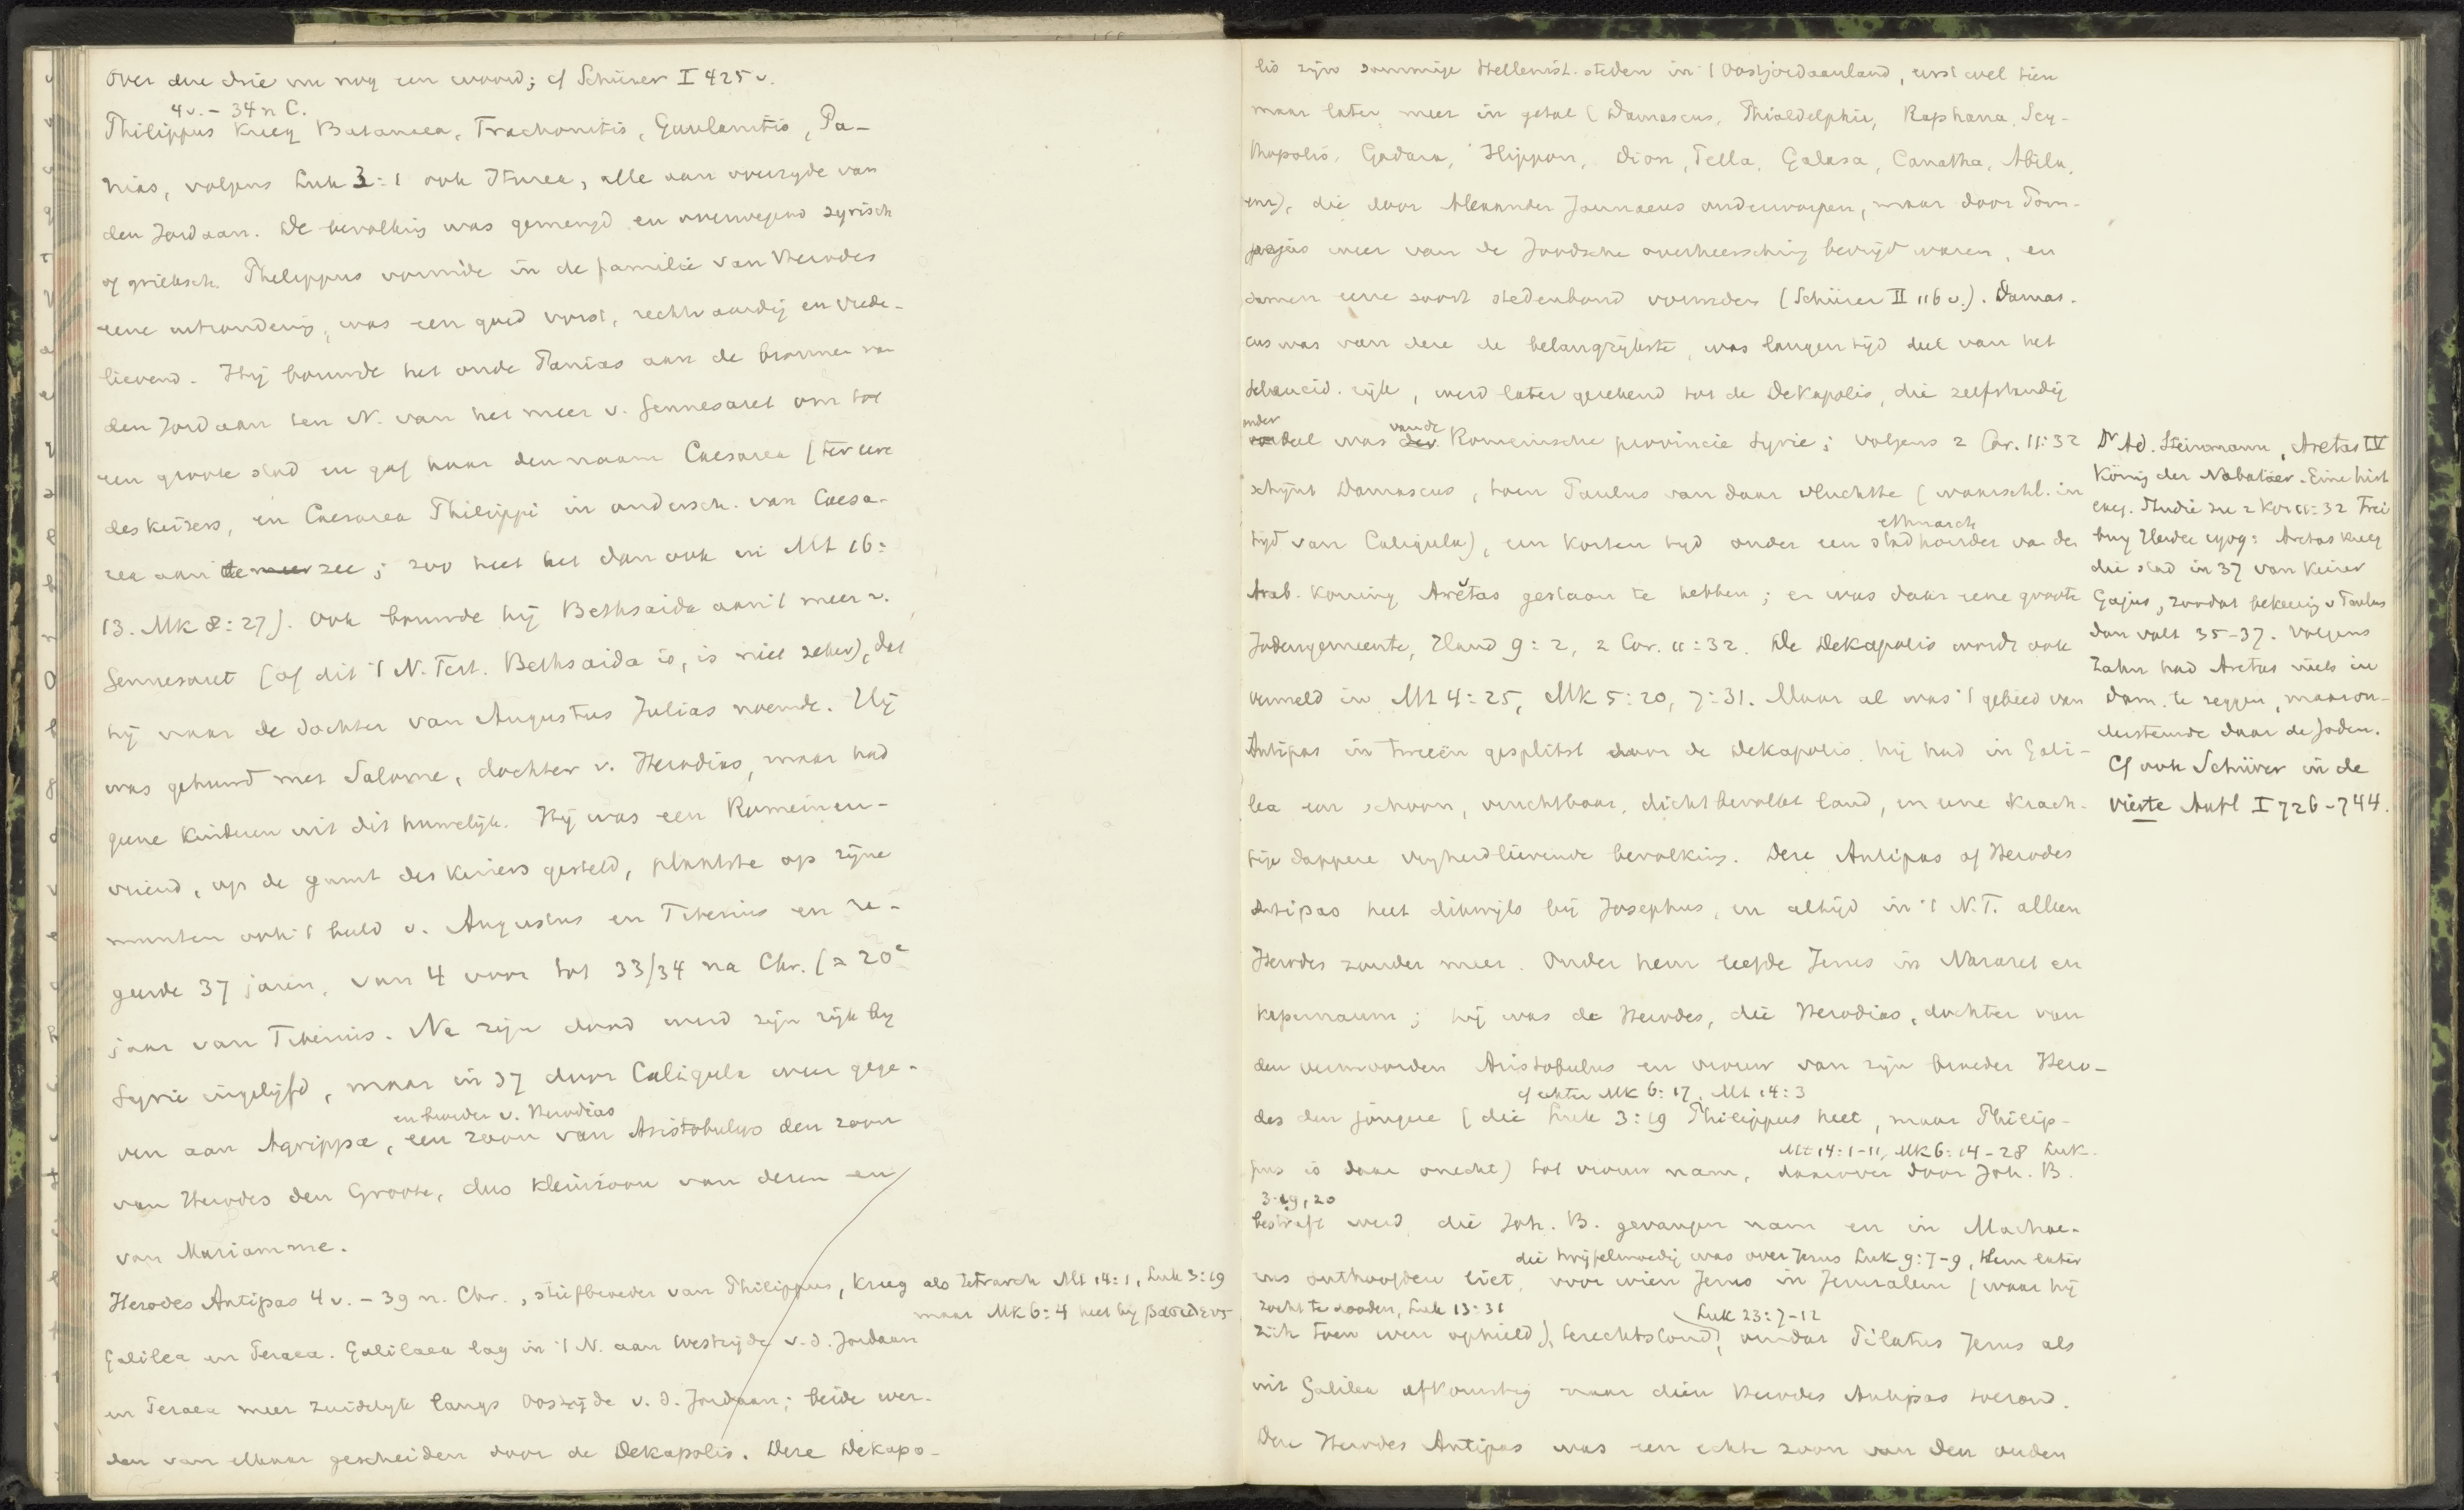 Over deze drie nu nog een woord; cf Schürer I 425 v.
4 v. – 34 n C.
Philippus kreeg Batanaea, Trachonitis, Gaulanitis, Pa-
nias, volgens Luk 3:1 ook Iturea, alle aan overzyde van
den Jordaan. De bevolking was gemengd en overwegend syrisch
of grieksch. Philippus vormde in de familie van Herodes
eene uitzondering, was een goed vorst, rechtvaardig en vrede-
lievend. Hij bouwde het oude Panias aan de bronnen van
den Jordaan ten N. van het meer v. Gennesaret om tot
een groote stad en gaf haar den naam Caesarea (ter eere
des keizers, en Caesarea Philippi in ondersch. van Caesa-
rea aan de meer zee; zoo heet het dan ook in Mt 16:
13. Mk 8:27). Ook bouwde hij Bethsaida aan 't meer v.
Gennesaret (of dit 't N. Test. Bethsaida is, is niet zeker), dat
hij naar de dochter van Augustus Julias noemde. Hij
was gehuwd met Salome, dochter v. Herodias, maar had
geene kinderen uit dit huwelijk. Hij was een Romeinen-
vriend, op de gunst des keizers gesteld, plaatste op zijne
munten ook 't beeld v. Augustus en Tiberius en re-
geerde 37 jaren, van 4 voor tot 33/34 na Chr. (= 20e
jaar van Tiberius. Na zijn dood werd zijn rijk by
Syrie ingelijfd, maar in 37 door Caligula weer gege-
en broeder v. Herodias
ven aan Agrippa, een zoon van Aristobulus den zoon
van Herodes den Groote, dus kleinzoon van dezen en
van Mariamme.
Herodes Antipas 4 v. – 39 n. Chr., stiefbroeder van Philippus, kreeg als Tetrarch Mt 14:1, Luk 3:19
maar Mk 6:4 heet hij βασιλευς
Galilea en Peraea. Galilaea lag in 't N. aan Westzijde v. d. Jordaan
en Peraea meer zuidelyk langs Oostzijde v. d. Jordaan; beide wer-
den van elkaar gescheiden door de Dekapolis. Deze Dekapo-
lis zijn sommige Hellenist. steden in 't Oostjordaanland, eerst wel tien
maar later meer in getal (Damascus, Philadelphie, Raphana, Scy-
thopolis, Gadara, Hippon, Dion, Pella, Galasa, Canatha, Abila,
enz), die door Alexander Jannaeus onderworpen, maar door Pom-
pejus weer van de Joodsche overheersching bevrijd waren, en
samen eene soort stedenbond vormden (Schürer II 116 v.). Damas-
cus was van deze de belangrijkste, was langen tijd deel van het
Seleucid. rijk, werd later gerekend tot de Dekapolis, die zelfstandig
onder van de
deel was der Romeinsche provincie Syrie; volgens 2 Cor. 11:32
schijnt Damascus, toen Paulus van daar vluchtte (waarschl. in
ethnarch
tijd van Caligula), een korten tyd onder een stadhouder van den
Arab. koning Aretas gestaan te hebben; er was daar eene groote
Jodengemeente, Hand 9:2, 2 Cor. 11:32. De Dekapolis wordt ook
vermeld in Mt 4:25, Mk 5:20, 7:31. Maar al was 't gebied van
Antipas in tweeën gesplitst door de Dekapolis, hij had in Gali-
lea een schoon, vruchtbaar, dichtbevolkt land, en eene krach-
tige dappere vrijheidlievende bevolking. Deze Antipas of Herodes
Antipas heet dikwijls bij Josephus, en altijd in 't N.T. alleen
Herodes zonder meer. Onder hem leefde Jezus in Nazaret en
Kapernaum; hij was de Herodes, die Herodias, dochter van
den vermoorden Aristobulus en vrouw van zijn broeder Hero-
cf echter Mk 6:17, Mt 14:3
des den jongere (die Luk 3:19 Philippus heet, maar Philip-
Mt 14:1–11, Mk 6:14–28 Luk.
pus is daar onecht) tot vrouw nam, daarover door Joh. B.
3:19, 20
bestraft werd, die Joh. B. gevangen nam en in Machae-
die twijfelmoedig was over Jezus Luk 9:7–9, Hem later
rus onthoofden liet, voor wien Jezus in Jeruzalem (waar hij
zocht te dooden, Luk 13:31
Luk 23:7–12
zich toen even ophield), terechtstond, omdat Pilatus Jezus als
uit Galilea afkomstig naar dien Herodes Antipas toezond.
Deze Herodes Antipas was een echte zoon van den ouden
Dr Ad. Steinmann, Aretas IV
König der Nabatäer. Eine hist
exeg. Studie zu 2 Kor 11:32 Frei
burg Herder 1909: Aretas kreeg
die stad in 37 van keizer
Gajus, zoodat bekeering v Paulus
dan valt 35–37. Volgens
Zahn had Aretas niets in
Dam. te zeggen, maar on-
dersteunde daar de Joden.
Cf ook Schürer in de
vierte Aufl I 726–744.